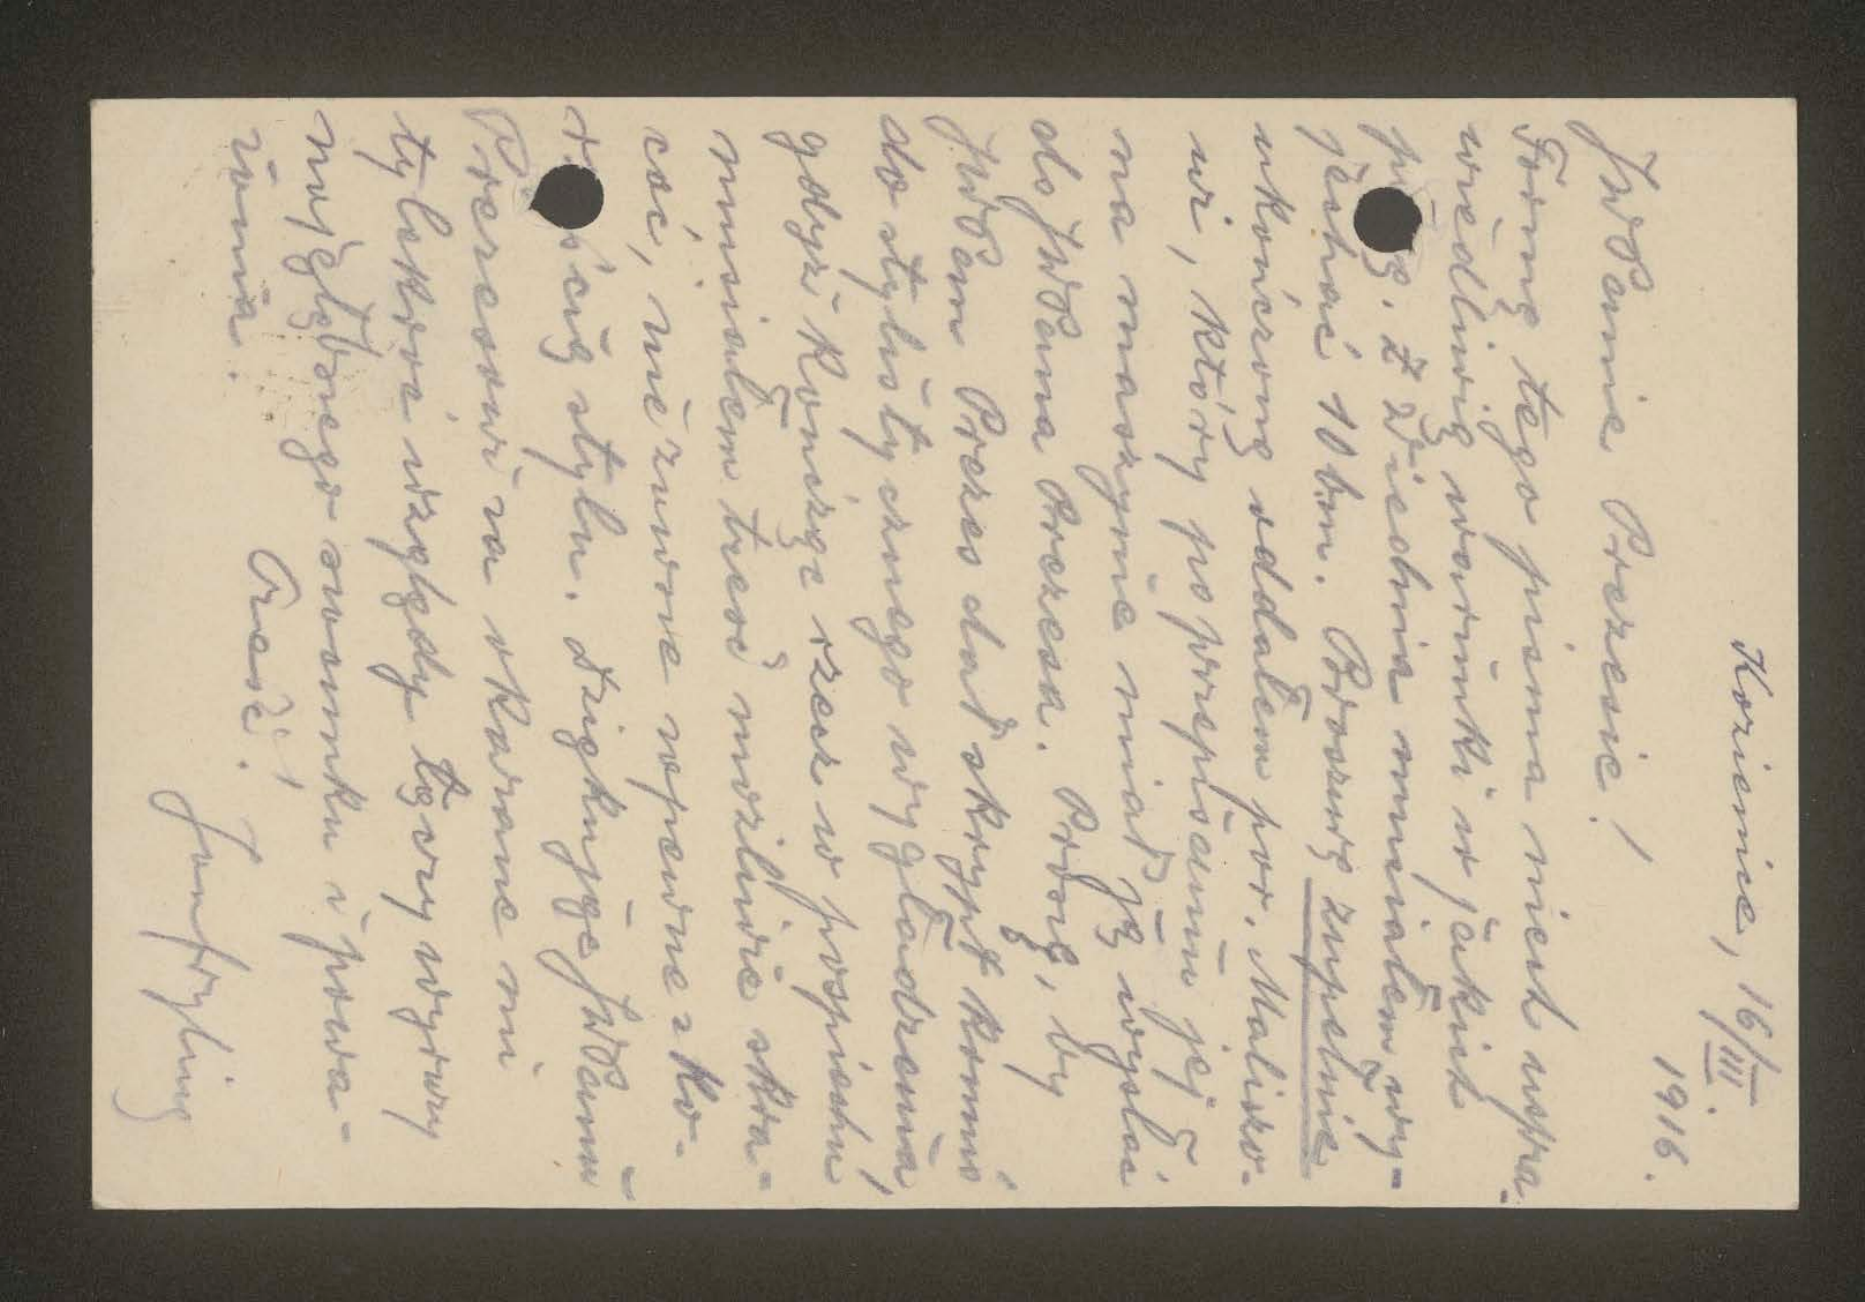 Kozienice, 16/III.
1916.
JWPanie Prezesie!
Formę tego pisma niech uspra-
wiedliwią warunki w jakich
piszę. Z Wiednia musiałem wy-
jechać 10 bm. Broszurę zupełnie
ukończoną oddałem por. Maliszo-
wi, który po przepisaniu jej
na maszynie miał ją wysłać
do JWPana Prezesa. Proszę, by
JWPan Prezes dał skrypt komuś
do stylistycznego wygładzenia,
gdyż kończąc rzecz w pośpiechu
musiałem treść możliwie skra-
cać, nie zawsze zapewne z ko-
rzyścią stylu. Dziękując JWPanu
Prezesowi za okazane mi
tylekroć względy łączy wyrazy
najgłębszego szacunku i powa-
żania. Cześć!